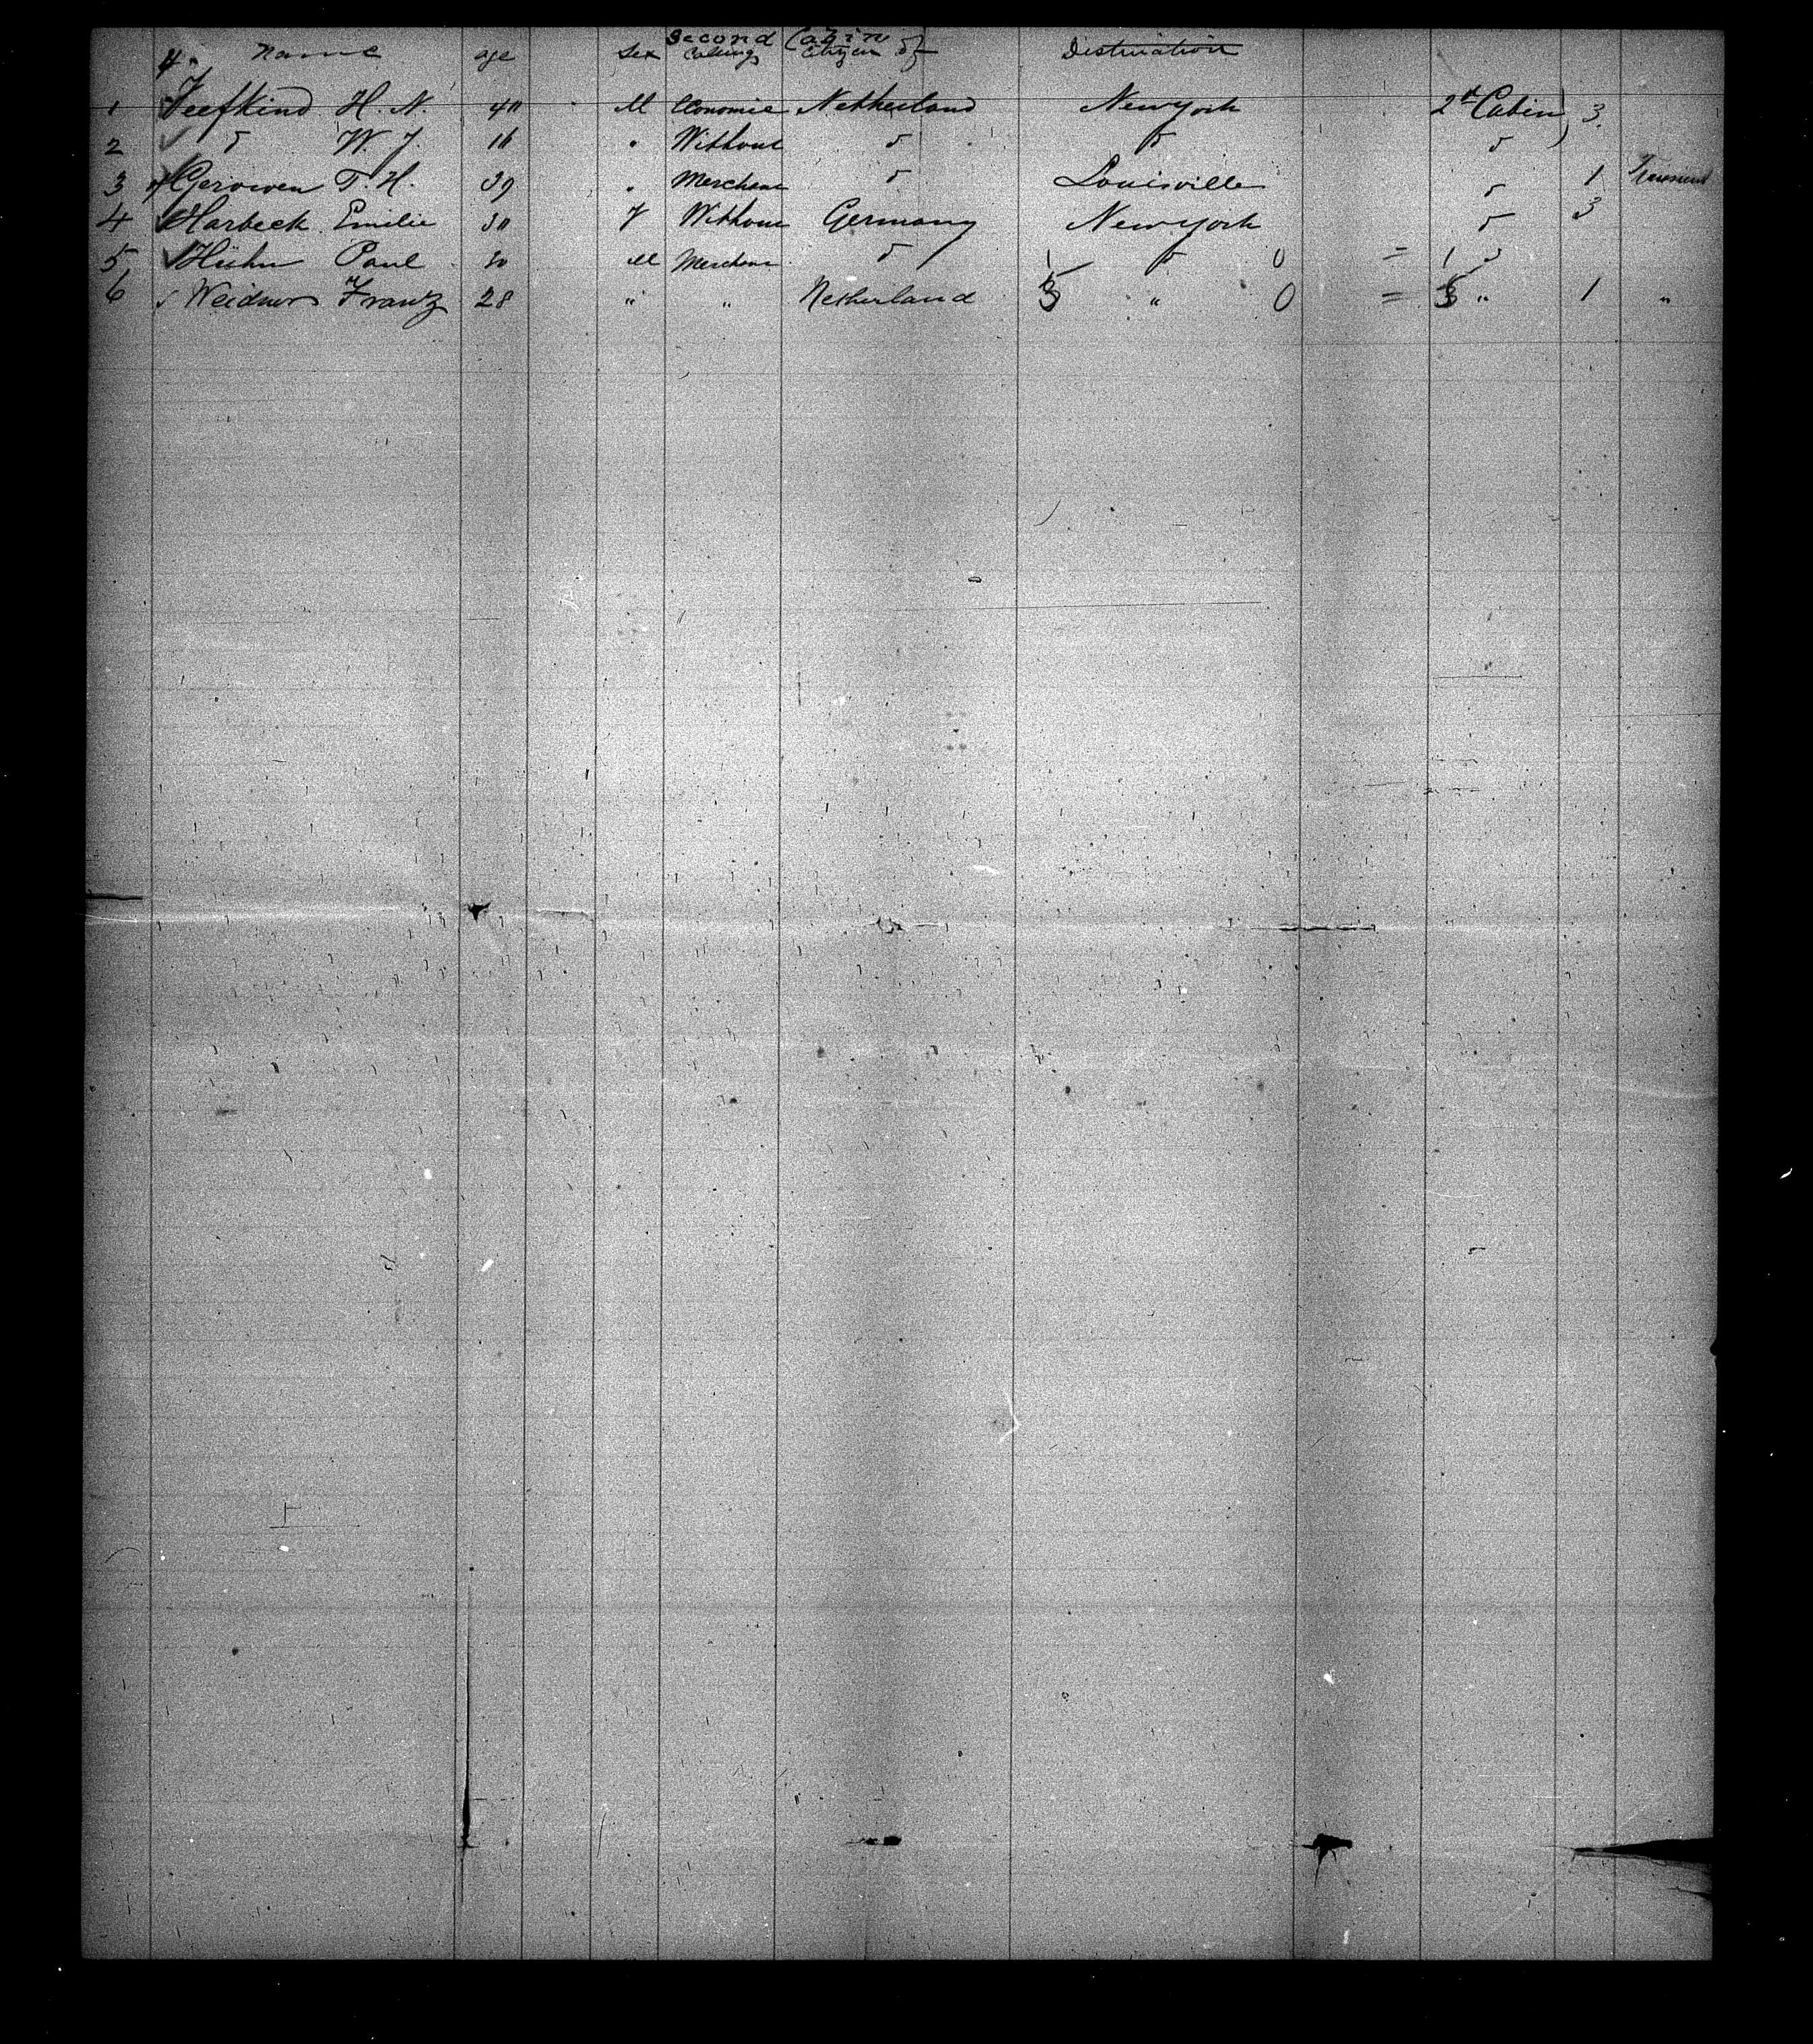 Second Cabin
4. Name age Sex Calling Citizen of Destination
1 Teefkind H. N. 40 M Economie Netherland New York 2d Cabin 3.
2 " W. J. 16 " Without " " "
3 T. H. 39 " Merchant " Louisville " 1
4 Harbeck Emilie 30 F Without Germany New York " 3
5 Hühn Paul 30 M Merchant " 1 " 0 = 1 "
6 Weidner Franz 28 " " Netherland 3 " 0 = 3 " 1 "